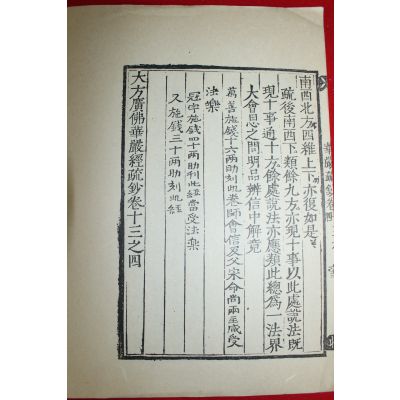 南西北方四維上下亦復如是
疏後南西下類餘九方亦現十事以此處說法既
現十事通十方餘處說法亦應類此總為一法界
大會思之問明品辨信中解竟
萬善施錢十六兩助刻此卷師會信及父宋命尚兩主咸受
法樂
冠宇施錢四十兩助刊此經當受法樂
又施錢三十兩助刻此經
大方廣佛華嚴經疏鈔卷十三之四
華嚴疏鈔卷